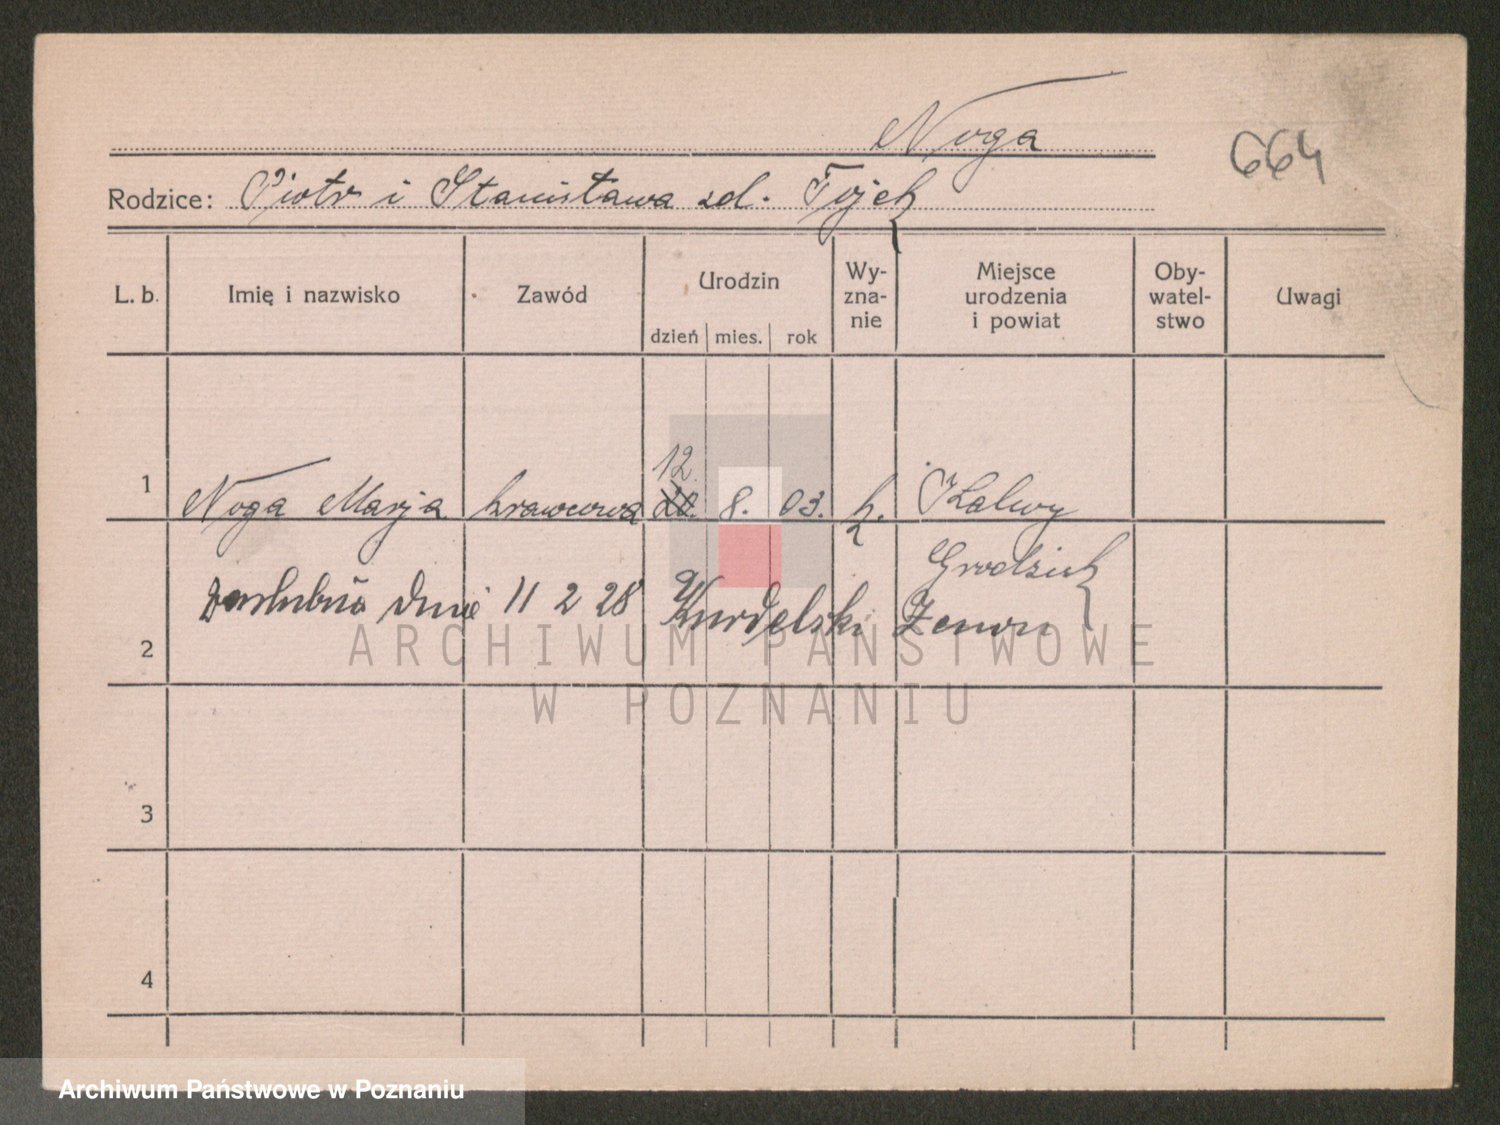 Noga
664
Rodzice: Piotr i Stanisława zd. Fojck
L. b. Imię i nazwisko Zawód Urodzin dzień mies. rok Wy-zna-nie Miejsce urodzenia i powiat Oby-watel-stwo Uwagi
12.
1 Noga Marja krawcowa 20. 8. 03. k. Kalwy
Grodzisk
2 dnia 11 2 28 Kurdelski Zenon
ARCHIWUM PAŃSTWOWE
W POZNANIU
3
4
Archiwum Państwowe w Poznaniu